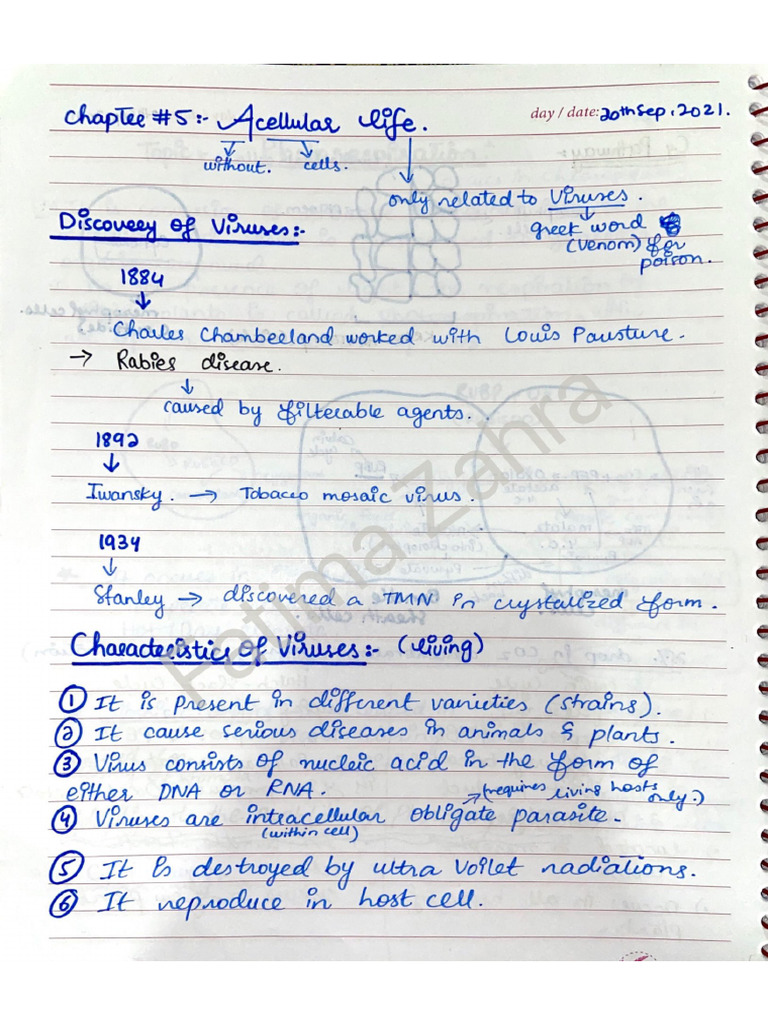 Chapter #5:- Acellular life.
day / date: 20th Sep, 2021.
without. cells.
only related to Viruses.
greek word
(venom) for
poison.
Discovery of Viruses:-
1884
Charles Chamberland worked with Louis Pausture.
→ Rabies disease.
caused by filterable agents.
1892
Iwansky. → Tobacco mosaic virus.
1934
Stanley → discovered a TMN in crystalized form.
Characteristics of Viruses:- (living)
① It is present in different varieties (strains).
② It cause serious diseases in animals & plants.
③ Virus consists of nucleic acid in the form of
either DNA or RNA.
(requires living hosts only.)
④ Viruses are intracellular obligate parasite.
(within cell)
⑤ It is destroyed by ultra voilet radiations.
⑥ It reproduce in host cell.
Fatima Zahra